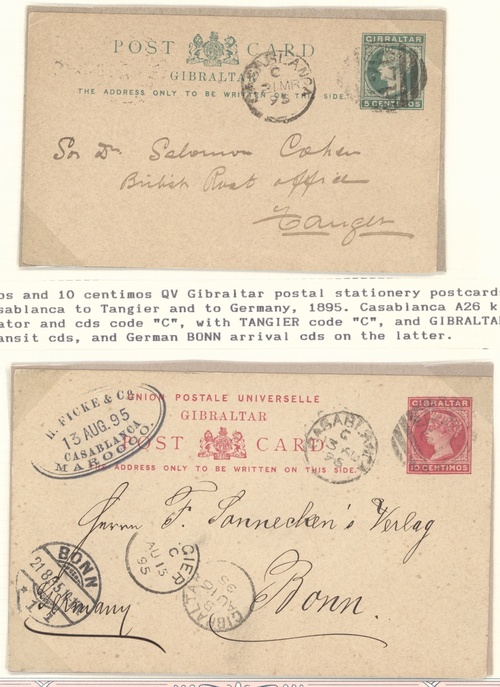 POST CARD
GIBRALTAR
THE ADDRESS ONLY TO BE WRITTEN ON THIS SIDE.
GIBRALTAR
5 CENTIMOS
CASABLANCA
C
MR
95
Sor Dn Salomon Cohen
British Post office
Tanger
os and 10 centimos QV Gibraltar postal stationery postcards
sablanca to Tangier and to Germany, 1895. Casablanca A26 k
ator and cds code "C", with TANGIER code "C", and GIBRALTA
ansit cds, and German BONN arrival cds on the latter.
UNION POSTALE UNIVERSELLE
GIBRALTAR
POST CARD
THE ADDRESS ONLY TO BE WRITTEN ON THIS SIDE.
GIBRALTAR
10 CENTIMOS
H. FICKE & Co
13 AUG. 95
CASABLANCA
MAROCCO.
CASABLANCA
C
Herrn F. Soennecken's Verlag
Bonn.
Germany
BONN
21 8 95
GIER
C
AU 15
95
GIBRALTAR
AU
95